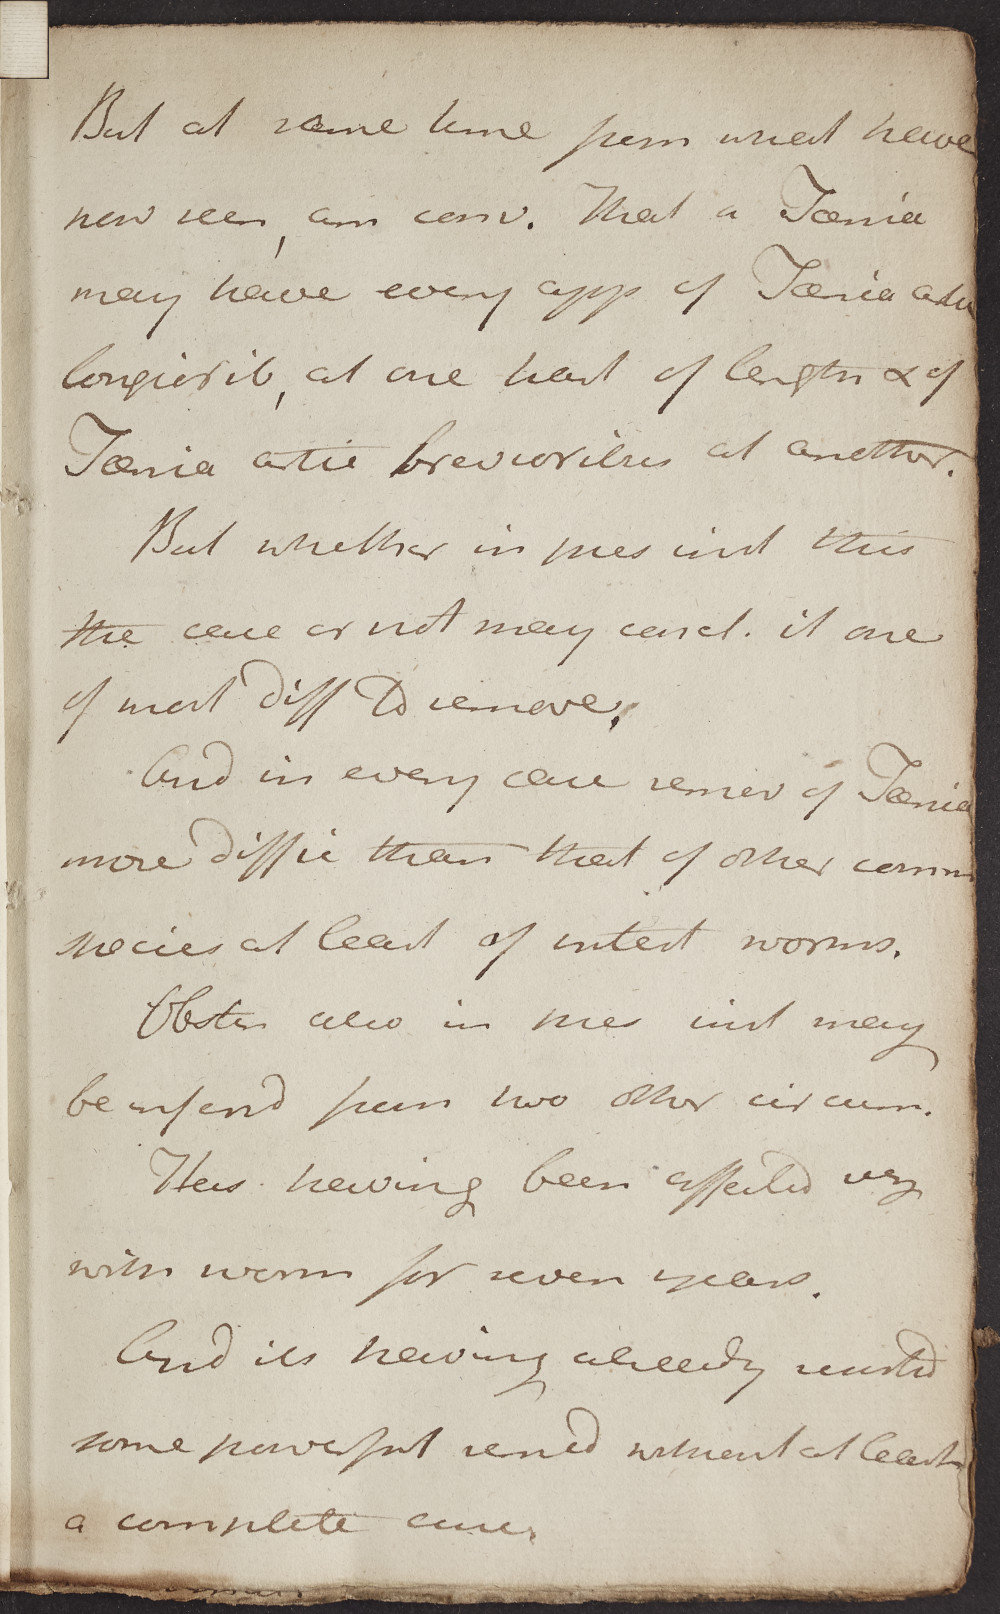 But at same time from what have
now seen, am conv. that a Tænia
may have every app of Tænia artic
longiorib, at one part of length & of
Tænia artic brevioribus at another.
But whether in pres inst this
the case or not may consid. it one
of most diff to remove.
And in every case remov of Tænia
more diffic than that of other comm
species at least of intest worms.
Obstin also in pres inst may
be infered from two other circum.
Her having been affected
with worm for seven years.
And its having already resisted
some powerful remed without at least
a complete cure.